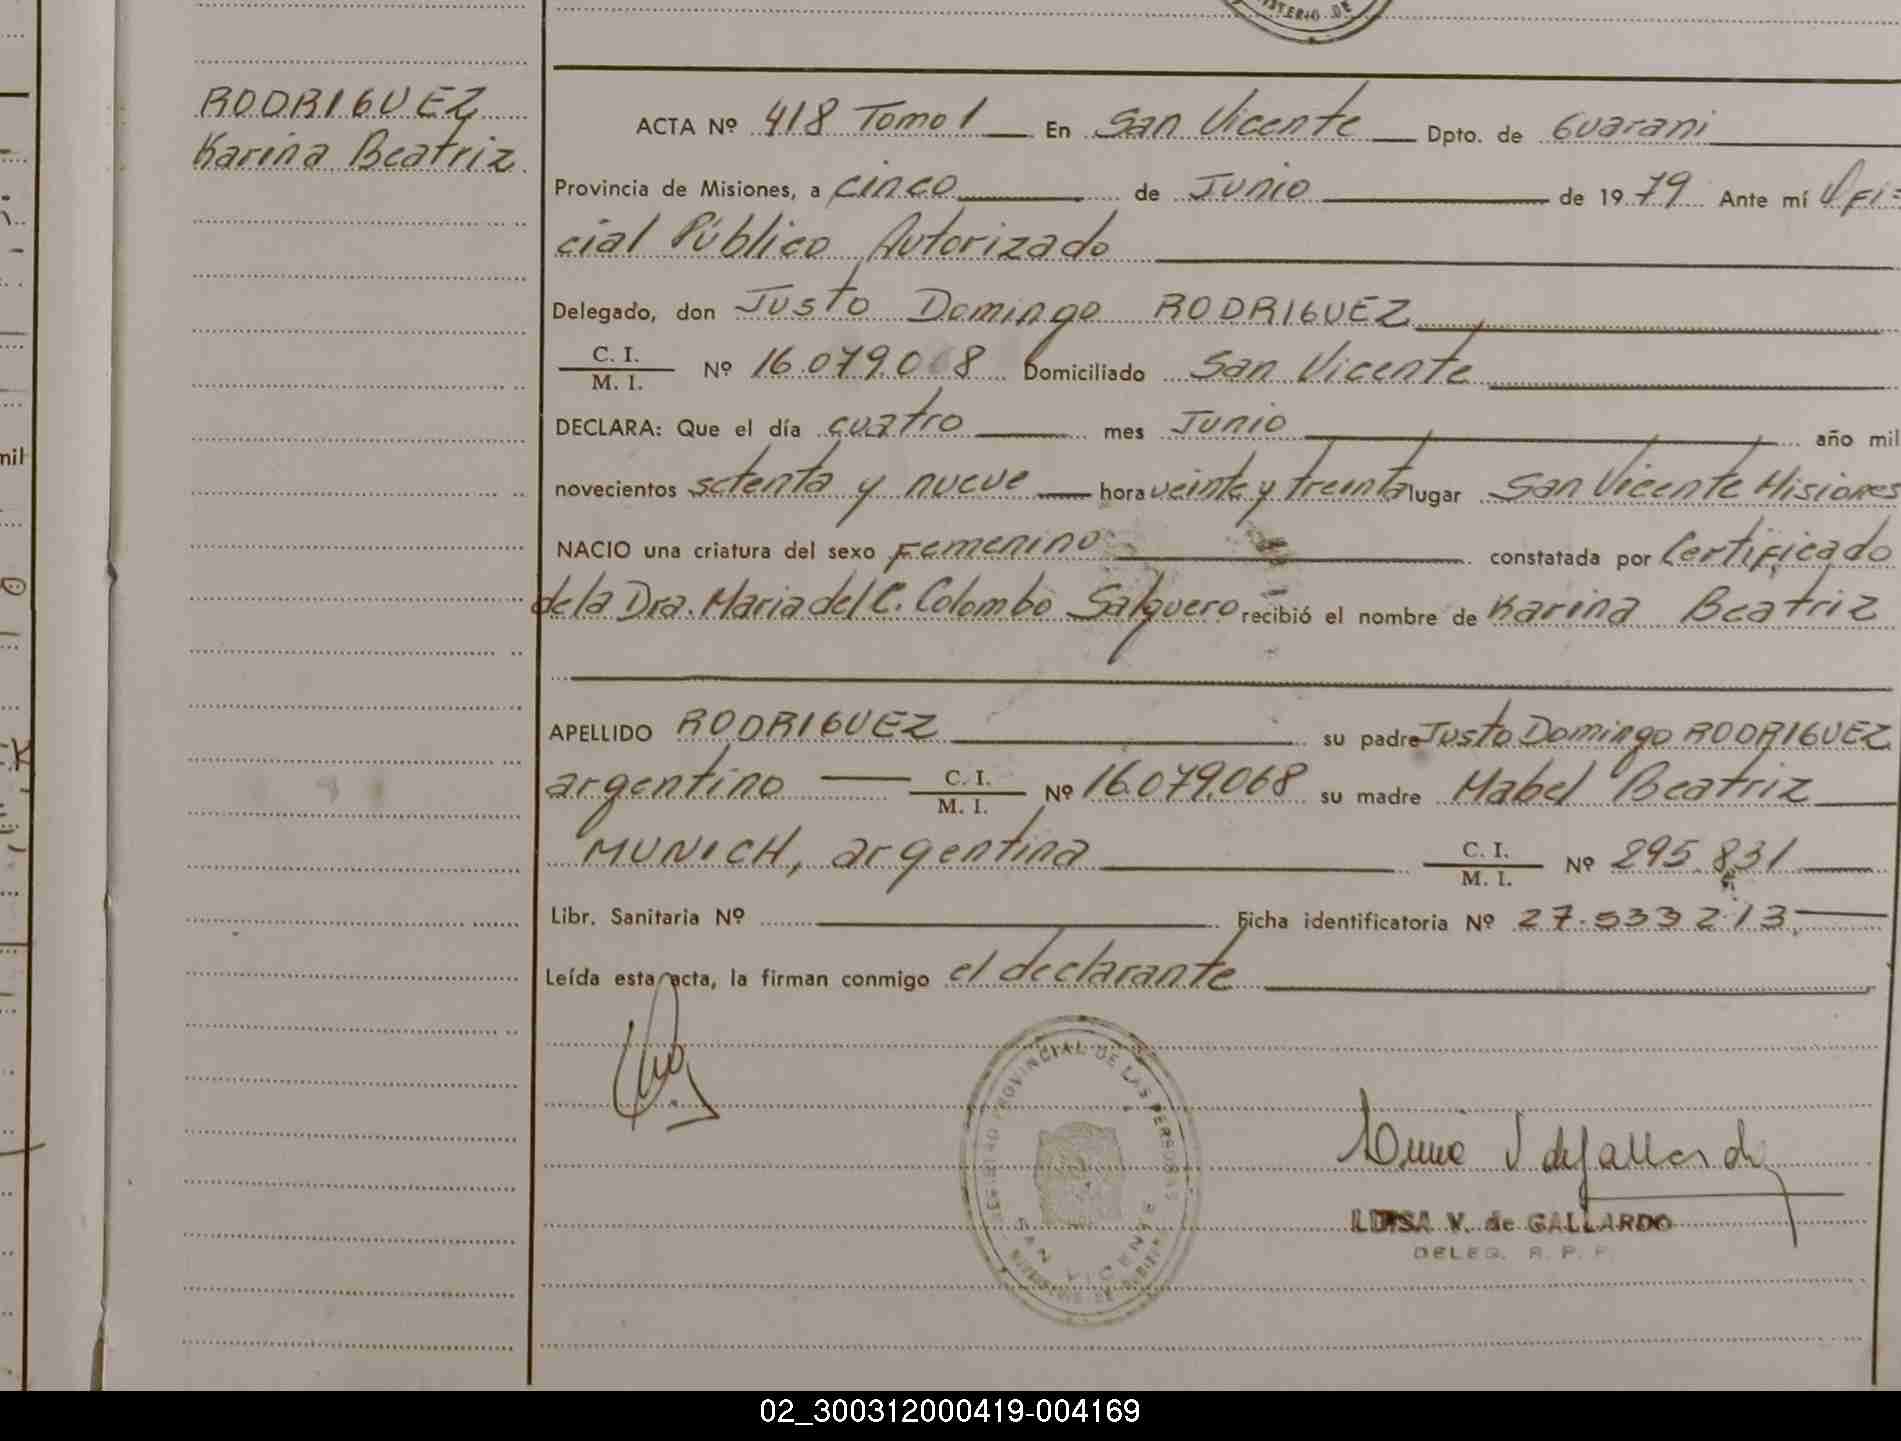 RODRIGUEZ
Karina Beatriz
ISTERIO DE
ACTA Nº 418 Tomo 1 En San Vicente Dpto. de Guarani
Provincia de Misiones, a cinco de Junio de 1979 Ante mí Ofi=
cial Público Autorizado
Delegado, don Justo Domingo RODRIGUEZ
C. I.
M. I. Nº 16.079.068 Domiciliado San Vicente
DECLARA: Que el día cuatro mes Junio año mil
novecientos setenta y nueve hora veinte y treinta lugar San Vicente Misiones
NACIO una criatura del sexo Femenino constatada por Certificado
de la Dra. Maria del C. Colombo Salguero recibió el nombre de Karina Beatriz
APELLIDO RODRIGUEZ su padre Justo Domingo RODRIGUEZ
argentino C. I.
M. I. Nº 16.079.068 su madre Mabel Beatriz
MUNICH, argentina C. I.
M. I. Nº 295.831
Libr. Sanitaria Nº Ficha identificatoria Nº 27.533213
Leída esta acta, la firman conmigo el declarante
REGISTRO PROVINCIAL DE LAS PERSONAS
SAN VICENTE
MINISTERIO DE GOBIERNO
LUISA V. de GALLARDO
DELEG. R. P. P.
mil
02_300312000419-004169